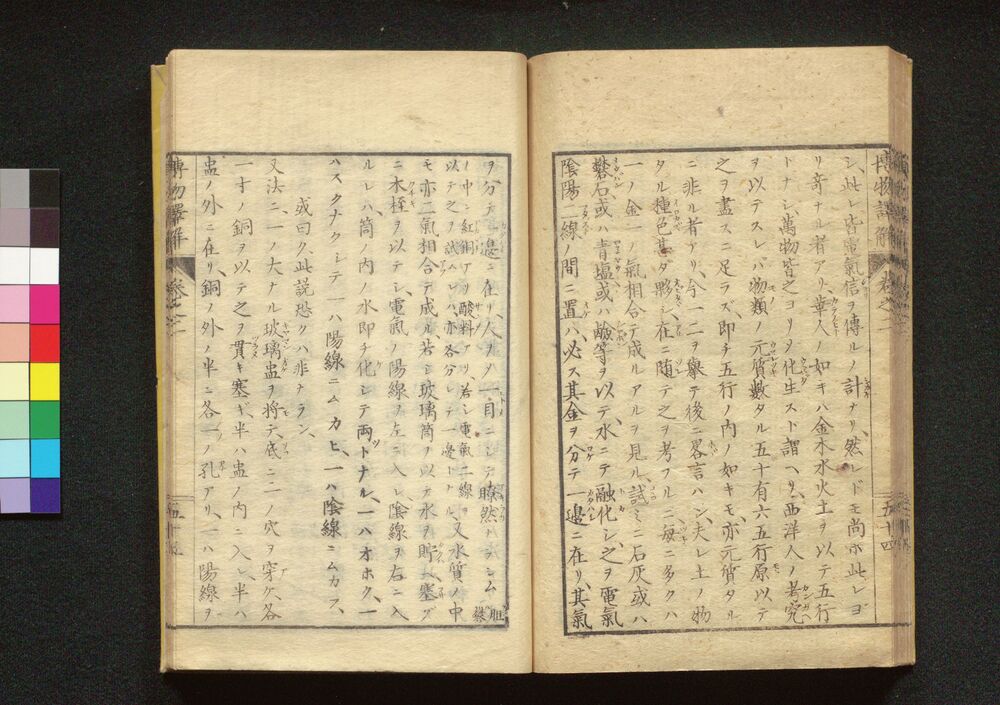 シ、此レ皆電氣信ヲ傳ルノ計ナリ、然レドモ尚ホ此レヨ
リ奇ナル者アリ、華人ノ如キハ金木水火土ヲ以テ五行
トナシ萬物皆之ヨリ化生スト謂ヘリ、西洋人ノ考究
ヲ以テスレバ物類ノ元質數タル五十有六五行原以テ
之ヲ盡スニ足ラス、即チ五行ノ内ノ如キモ、亦元質タル
ニ非ル者アリ、今一二ヲ擧テ後ニ畧言ハン、夫レ土ノ物
タル種色甚タ夥シ、在ニ随テ之ヲ考フルニ毎ニ多クハ
一ノ金一ノ氣相合テ成ルアルヲ見ル試ミニ石灰或ハ
礬石或ハ青塩或ハ鹼等ヲ以テ、水ニテ融化シ、之ヲ電氣
陰陽二線ノ間ニ置ハ、必ス其金ヲ分テ一邊ニ在リ、其氣
ヲ分テ一邊ニ在リ、人ヲノ一目ニシテ瞭然ハラシム
ノ中ニ紅銅アリ酸料アリ若シ電氣二線
以テ之ヲ試ムレハ亦各分レテ一邊トナル、又水質ノ中
モ亦二氣相合テ成ル、若シ玻璃筒ヲ以テ水ヲ貯ヘ塞グ
ニ木栓ヲ以テシ、電氣ノ陽線ヲ左ニ入レ、陰線ヲ右ニ入
ルレハ、筒ノ内ノ水即チ化シテ両トナル、一ハオホク、一
ハスクナクシテ一ハ陽線ニムカヒ、一ハ陰線ニムカフ、
或曰ク、此説恐クハ非ナラン、
又法ニ、一ノ大ナル玻璃盅ヲ将テ、底ニ二ノ穴ヲ穿ケ、各
一寸ノ銅ヲ以テ之ヲ貫キ塞ギ、半ハ盅ノ内ニ入レ、半ハ
盅ノ外ニ在リ、銅ノ外ノ半ニ各一ノ孔アリ、一ハ陽線ヲ
博物
解
巻之二
五十四